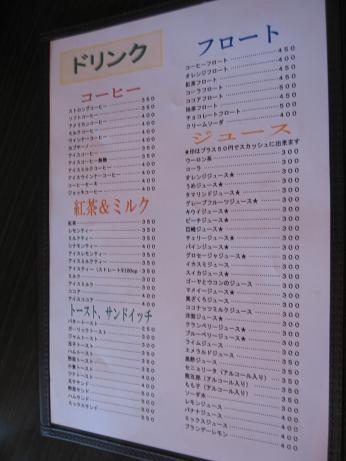 ドリンク
コーヒー
ストロングコーヒー 350
ソフトコーヒー 350
アメリカンコーヒー 400
ミルクコーヒー 400
ウインナーコーヒー 400
カプチーノ
アイスコーヒー
アイスミルクコーヒー
アイスウインナーコーヒー
紅茶&ミルク
紅茶 350
レモンティー 350
ミルクティー 350
シナモンティー
アイスレモンティー
アイスミルクティー
ミルク
アイスミルク
ココア
アイスココア
トースト、サンドイッチ
バタートースト 250
ガーリックトースト
ジャムトースト
玉子トースト
ハムトースト
野菜トースト
小倉トースト
ツナトースト
玉子サンド
野菜サンド
ハムサンド
ミックスサンド 500
フロート
コーヒーフロート 450
オレンジフロート 400
紅茶フロート 450
コーラフロート 400
ココアフロート 500
抹茶フロート 500
チョコレートフロート
クリームソーダ 400
ジュース
★印はプラス50円でスカッシュに出来ます
ウーロン茶 300
コーラ 300
オレンジジュース★ 300
うめジュース★ 300
タマリンドジュース★ 300
グレープフルーツジュース★ 300
キウイジュース★ 300
ピーチジュース★ 300
巨峰ジュース★ 300
チェリージュース★ 300
パインジュース★ 300
グロセージャジュース★ 300
イカスミジュース 300
スイカジュース★ 300
ゴーヤとウコンのジュース 300
マメイージュース★ 300
黒ざくろジュース 300
ココナッツミルクジュース 300
洋梨ジュース★ 300
クランベリージュース★ 300
ブルーベリージュース★ 300
ライムジュース 300
エメラルドジュース 300
黒酢ジュース 300
セニョリータ(アルコール入り)
もも子(アルコール入り)
ソーダ水
レモンジュース 400
バナナジュース 400
ミックスジュース 400
ブランデーレモン 400